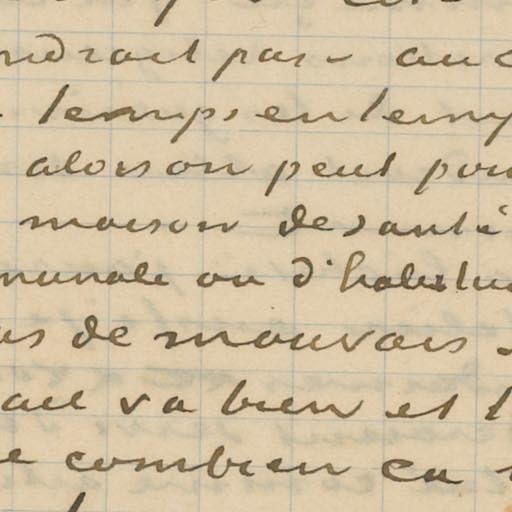 ndrait pas - au c
temps en temp
alors on peut pou
maison de santé
munale ou d'habitu
us de mauvais
ail va bien et l
e combien ca